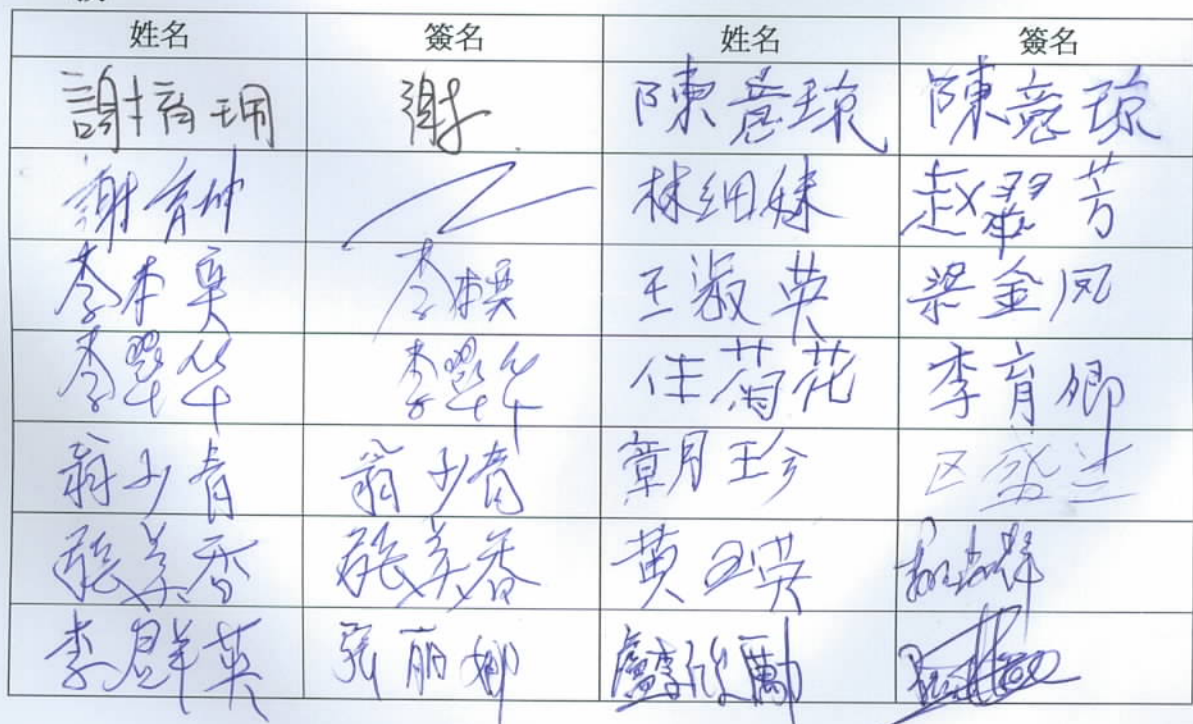 姓名 簽名 姓名 簽名
謝 謝 陳意琼 陳意琼
謝育坤 林细妹 赵翠芳
李本英 李本英 王淑英 梁金凤
李翠华 李翠华 住菊花 李育卿
翁少青 翁少青 章月珍 区盛兰
施美香 施美香 黄玉英
李群英 張丽娜